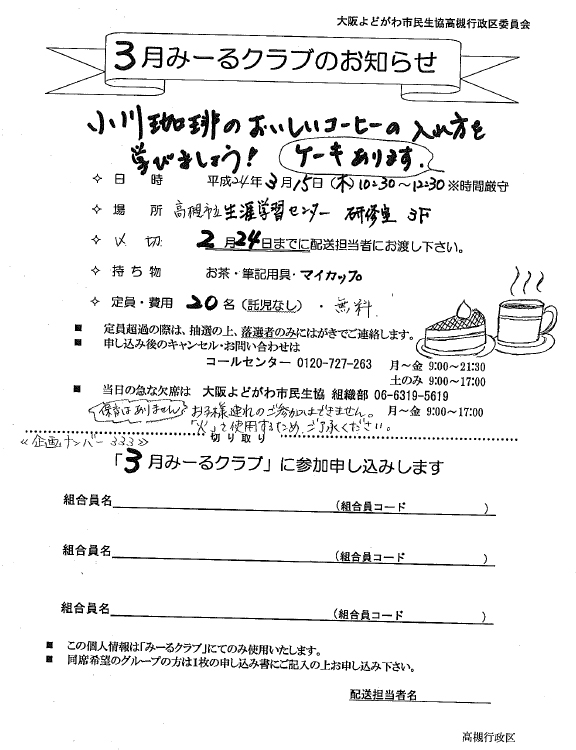 大阪よどがわ市民生協高槻行政区委員会
3月みーるクラブのお知らせ
小川珈琲のおいしいコーヒーの入れ方を
学びましょう! ケーキあります.
✧ 日 時 平成24年3月15日(木)10:30〜12:30 ※時間厳守
✧ 場 所 高槻市立生涯学習センター 研修室 3F
✧ 〆 切 2月24日までに配送担当者にお渡し下さい。
✧ 持 ち 物 お茶・筆記用具・マイカップ
✧ 定員・費用 20名(託児なし)・無料
■ 定員超過の際は、抽選の上、落選者のみにはがきでご連絡します。
■ 申し込み後のキャンセル・お問い合わせは
コールセンター 0120-727-263 月〜金 9:00〜21:30
土のみ 9:00〜17:00
■ 当日の急な欠席は 大阪よどがわ市民生協 組織部 06-6319-5619
月〜金 9:00〜17:00
保育はありません お子様連れのご参加はできません。
「火」を使用するため、ご了承ください。
切り取り
≪企画ナンバー 333≫
「3月みーるクラブ」に参加申し込みします
組合員名 (組合員コード )
組合員名 (組合員コード )
組合員名 (組合員コード )
■ この個人情報は「みーるクラブ」にてのみ使用いたします。
■ 同席希望のグループの方は1枚の申し込み書にご記入の上お申し込み下さい。
配送担当者名
高槻行政区